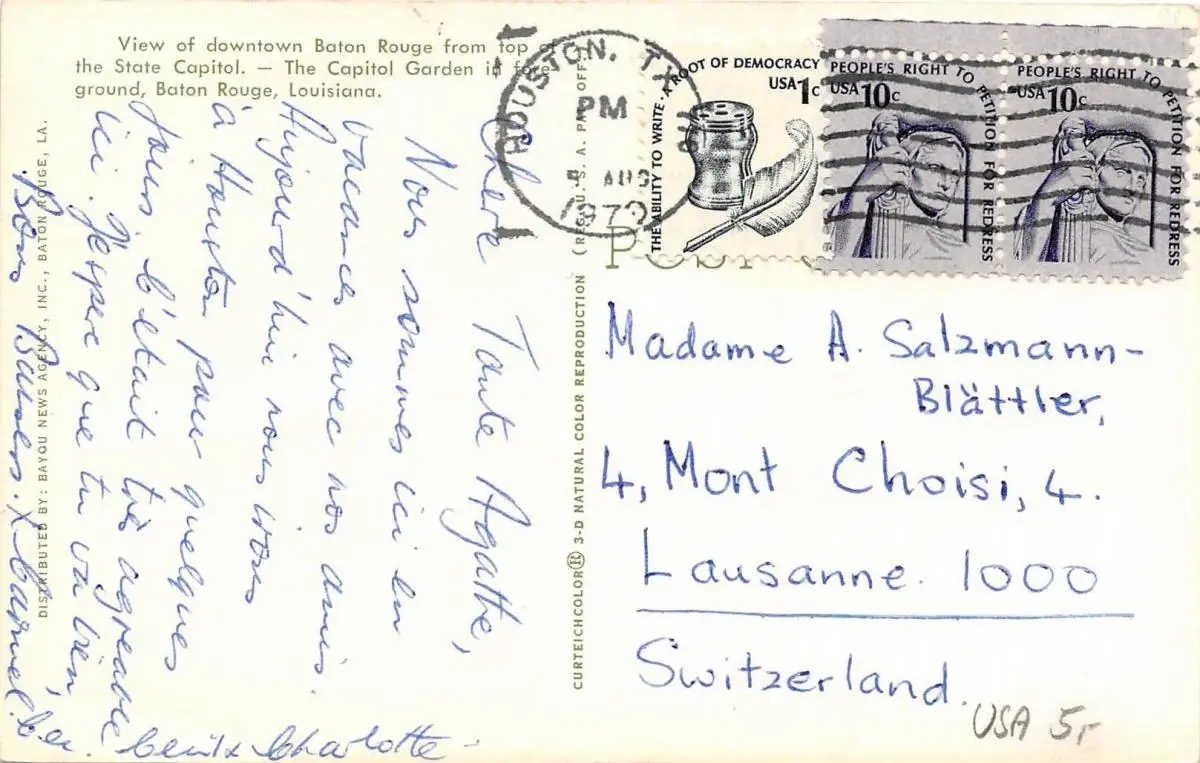 View of downtown Baton Rouge from top of
the State Capitol. — The Capitol Garden in fore-
ground, Baton Rouge, Louisiana.
DISTRIBUTED BY: BAYOU NEWS AGENCY, INC., BATON ROUGE, LA.
Chère Tante Agathe,
Nous sommes ici en
vacances avec nos amis.
Aujourd'hui nous irons
à Houston pour quelques
jours. C'était très agréable
ici. J'espère que tu vas bien.
Bons Baisers.
Charlotte
CURTEICHCOLOR® 3-D NATURAL COLOR REPRODUCTION (REG. U.S.A. PAT. OFF.)
HOUSTON, TX
PM
AUG
1979
THE ABILITY TO WRITE · A ROOT OF DEMOCRACY
USA 1c
PEOPLE'S RIGHT TO PETITION FOR REDRESS
USA 10c
PEOPLE'S RIGHT TO PETITION FOR REDRESS
USA 10c
Madame A. Salzmann-
Blättler,
4, Mont Choisi, 4.
Lausanne. 1000
Switzerland.
USA 5,-